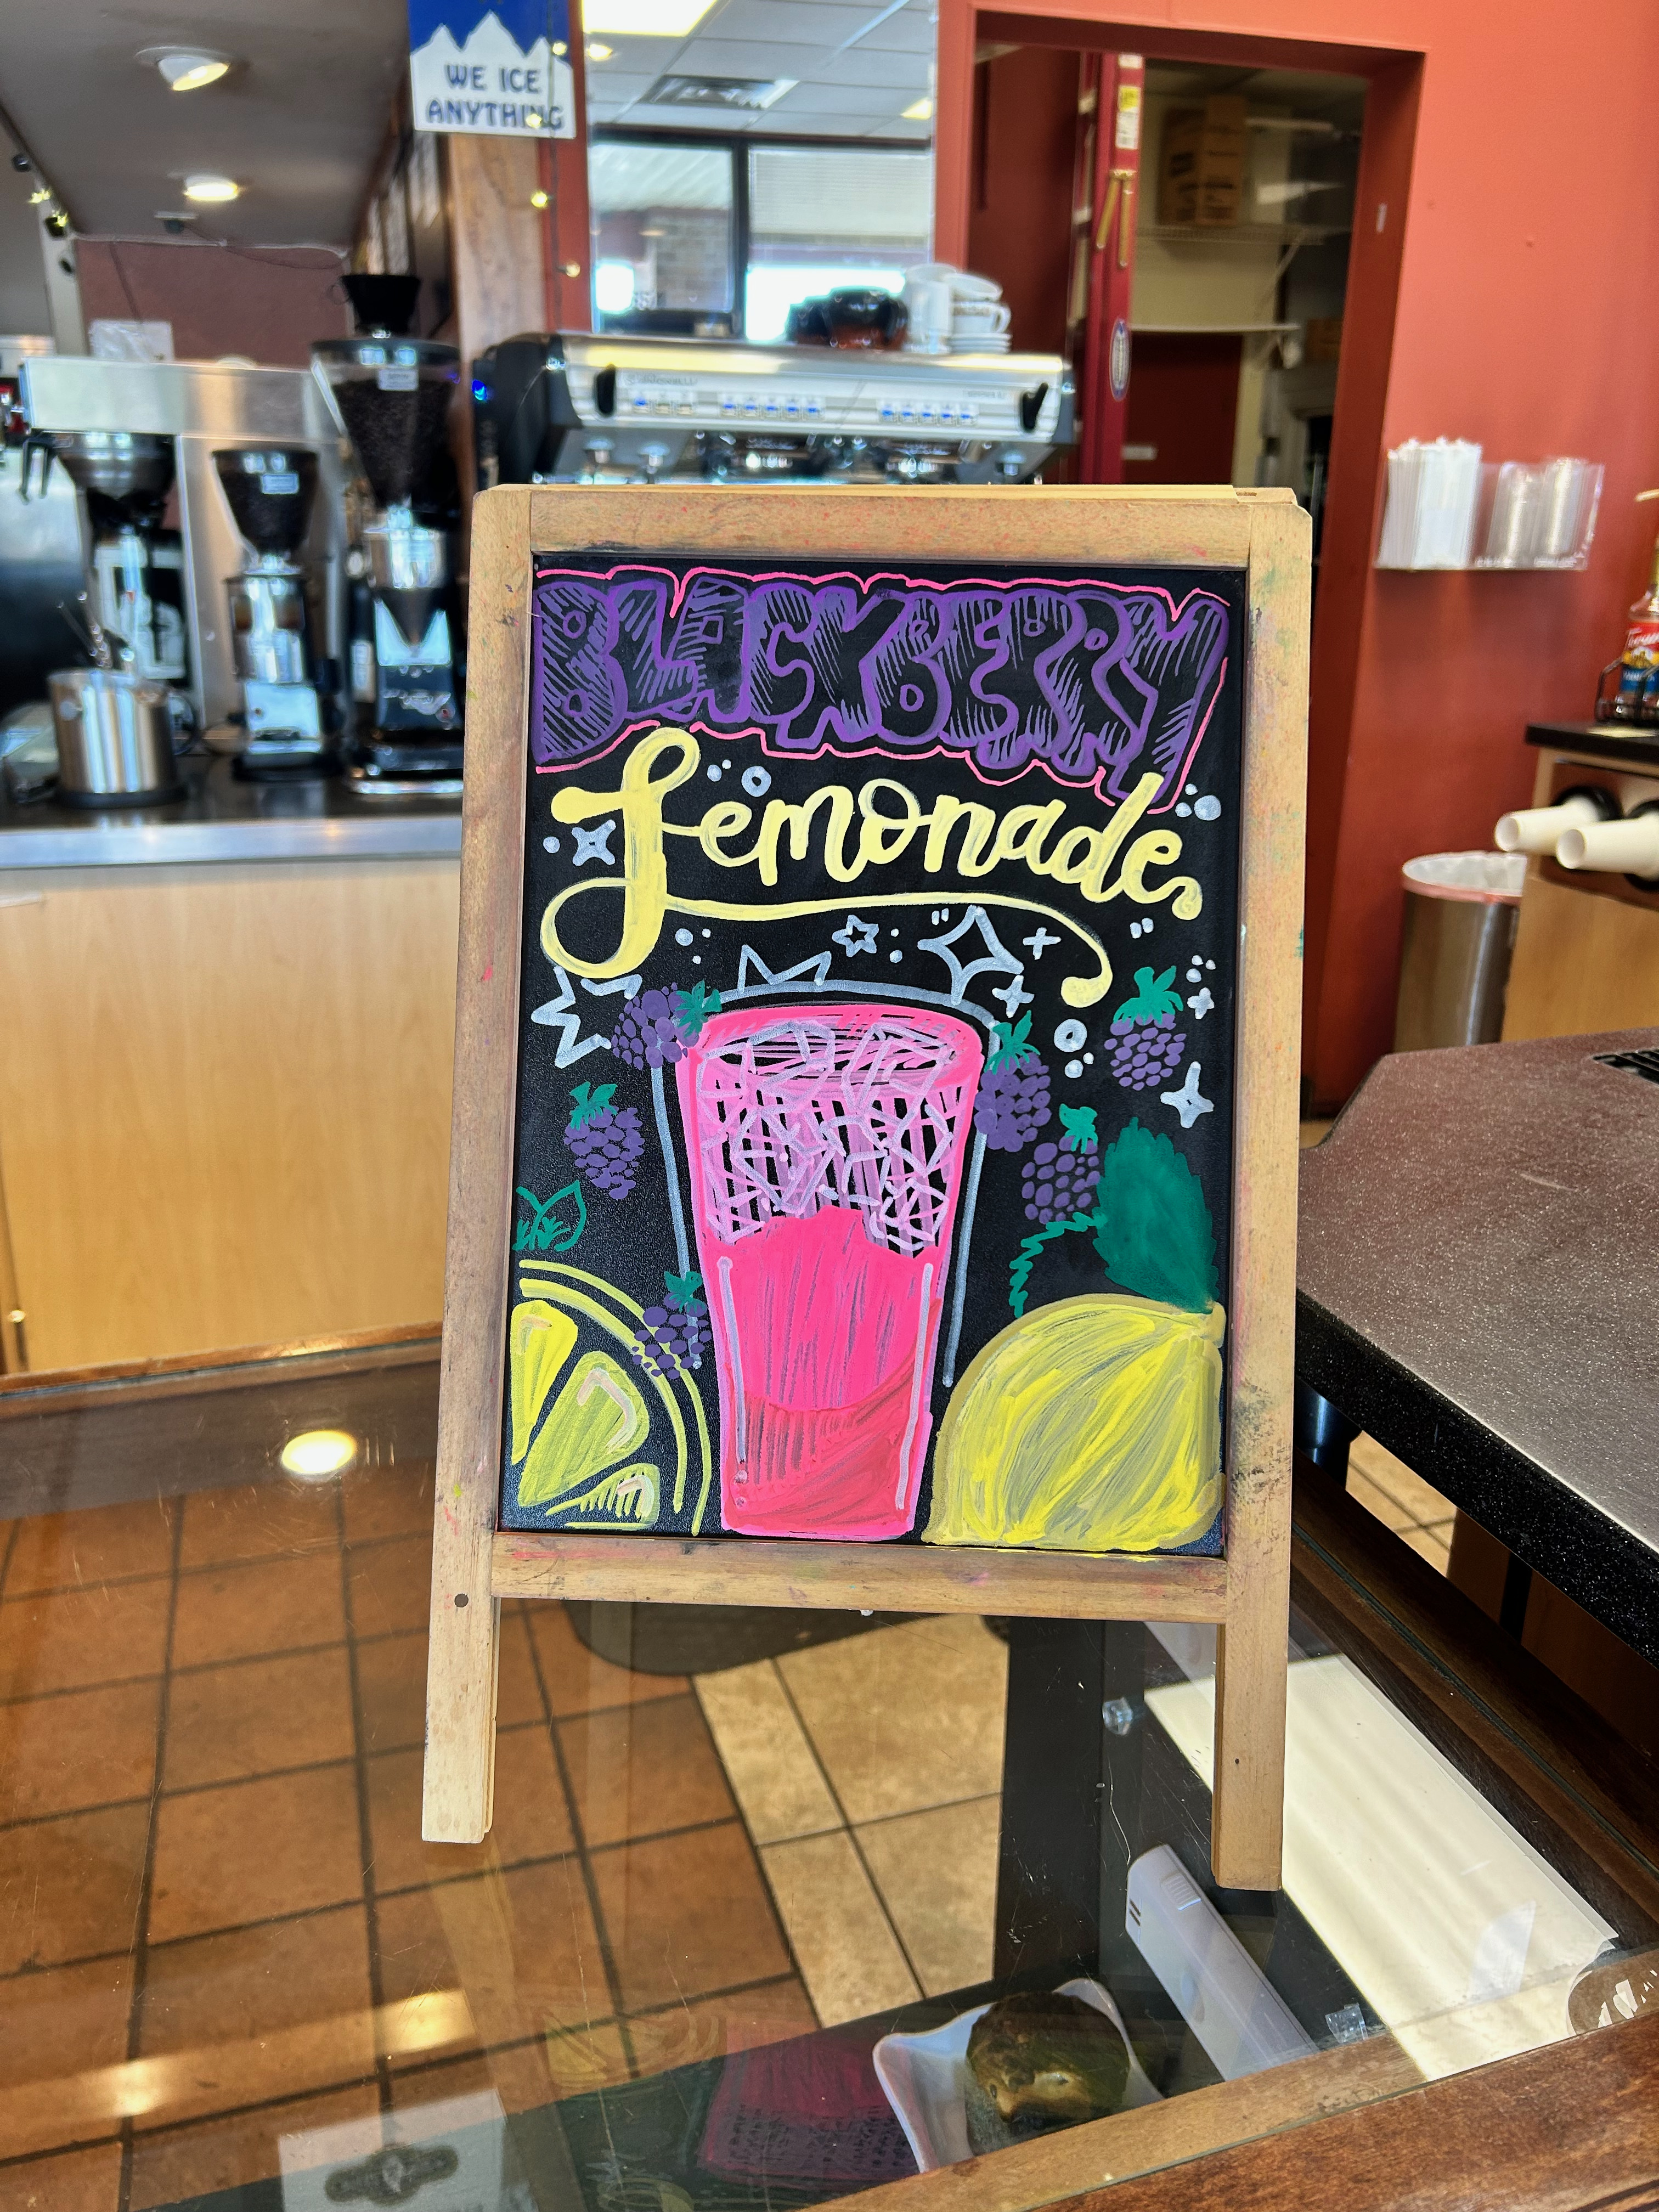 WE ICE
ANYTHING
BLACKBERRY
Lemonade